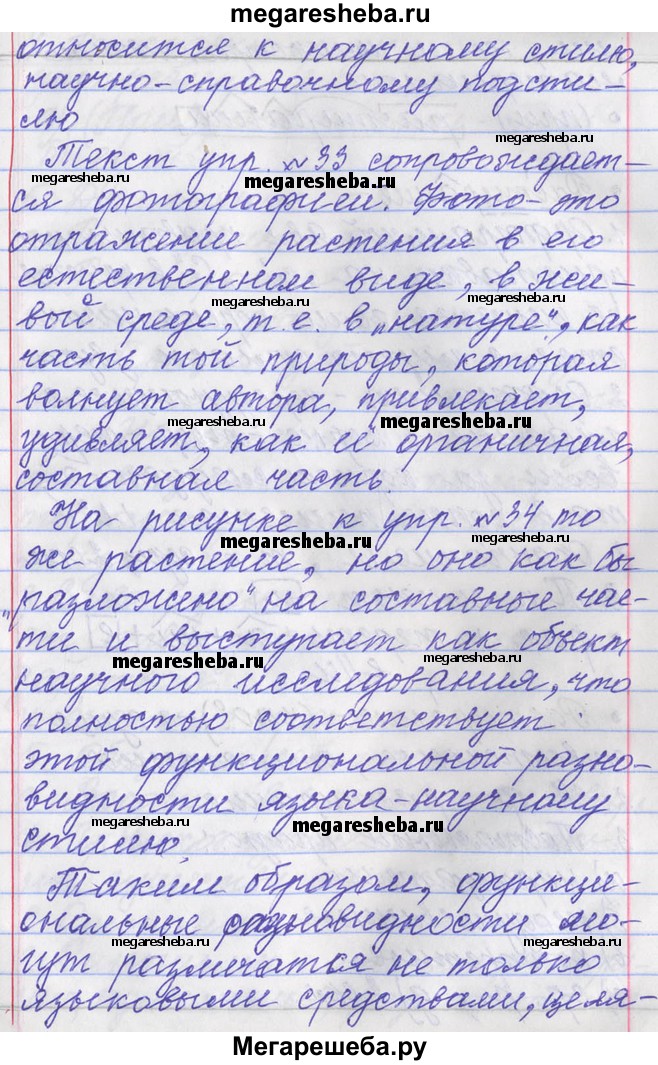 megaresheba.ru
относится к научному стилю,
научно-справочному подсти-
лю
Текст упр. №33 сопровождает-
megaresheba.ru
megaresheba.ru
megaresheba.ru
ся фотографией. Фото-это
отражение растения в его
естественном виде, в жи-
megaresheba.ru
megaresheba.ru
вой среде, т.е. в „натуре“, как
часть той природы, которая
волнует автора, привлекает,
megaresheba.ru
megaresheba.ru
удивляет, как её органичная,
составная часть.
На рисунке к упр. №34 то
megaresheba.ru
megaresheba.ru
же растение, но оно как бы
„разложено“ на составные час-
ти и выступает как объект
megaresheba.ru
megaresheba.ru
научного исследования, что
полностью соответствует
этой функциональной разно-
видности языка-научному
megaresheba.ru
megaresheba.ru
стилю.
Таким образом, функци-
ональные разновидности мо-
megaresheba.ru
megaresheba.ru
гут различатся не только
языковыми средствами, целя-
Мегарешеба.ру